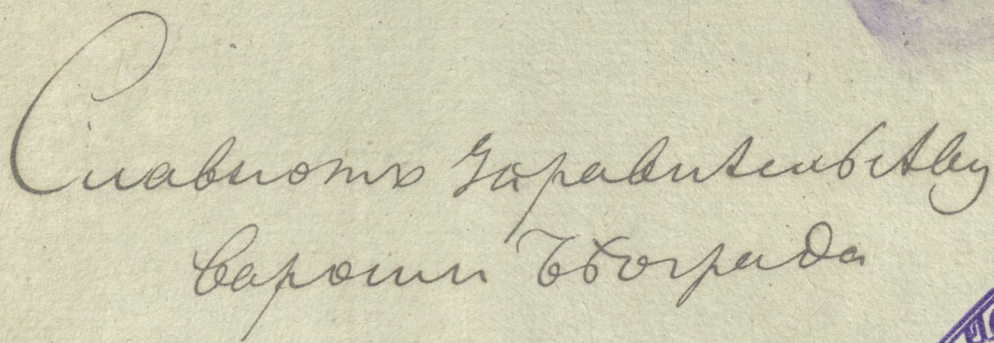 Славномъ Управительству
вароши Бѣограда